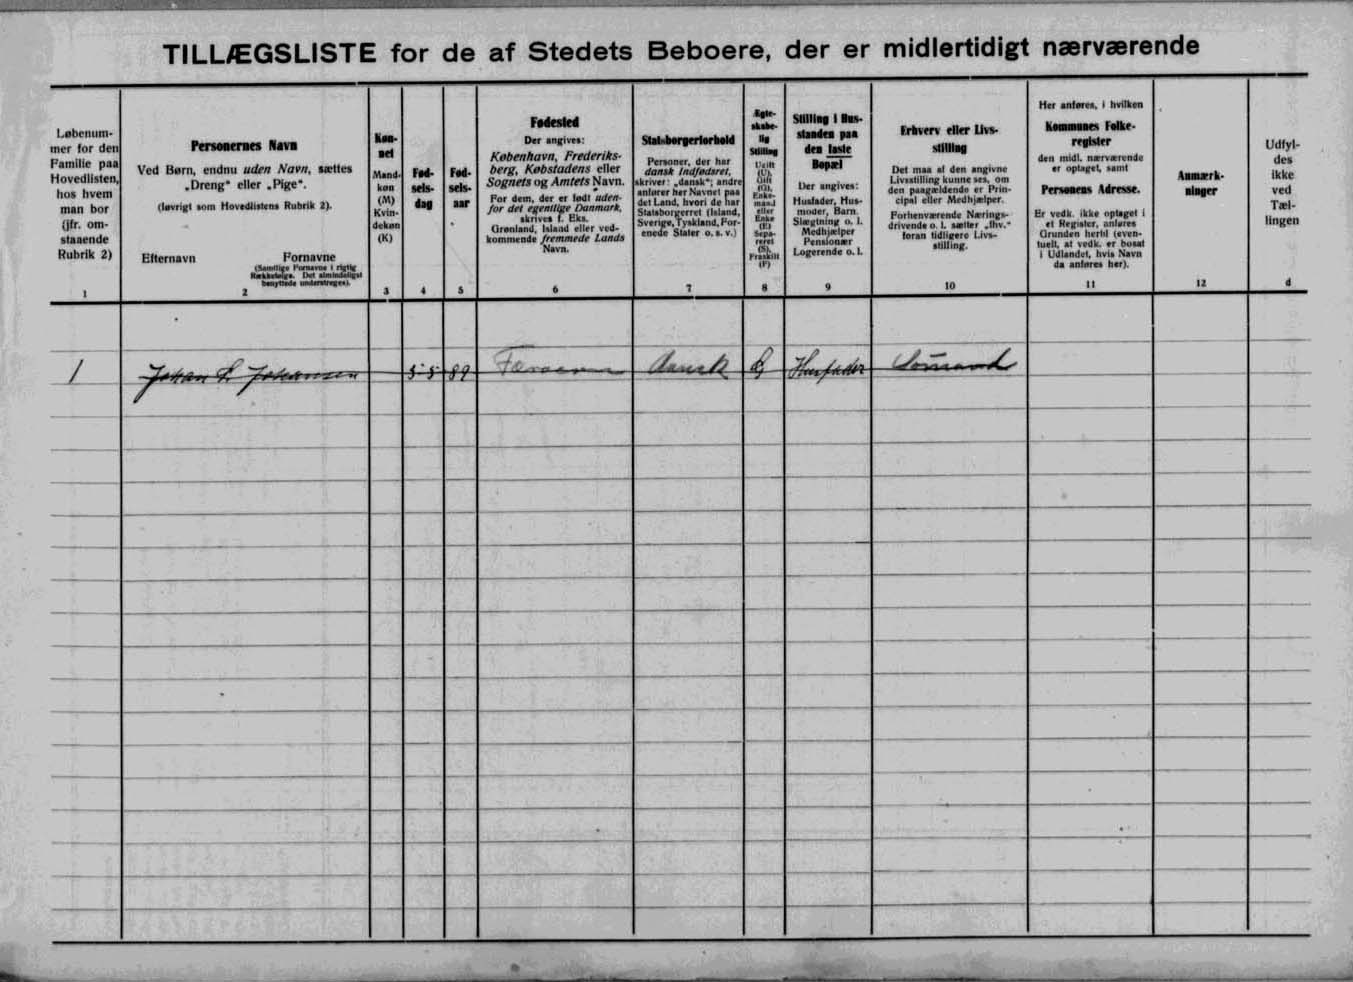 TILLÆGSLISTE for de af Stedets Beboere, der er midlertidigt nærværende
Løbenum-
mer for den
Familie paa
Hovedlisten,
hos hvem
man bor
(jfr. om-
staaende
Rubrik 2)
1
Personernes Navn
Ved Børn, endnu uden Navn, sættes
„Dreng“ eller „Pige“.
(Iøvrigt som Hovedlistens Rubrik 2).
Efternavn
Fornavne
(Samtlige Fornavne i rigtig
Rækkefølge. Det almindeligst
benyttede understreges).
2
Køn-
net
Mand-
køn
(M)
Kvin-
dekøn
(K)
3
Fød-
sels-
dag
4
Fød-
sels-
aar
5
Fødested
Der angives:
København, Frederiks-
berg, Købstadens eller
Sognets og Amtets Navn.
For dem, der er født uden-
for det egentlige Danmark,
skrives f. Eks.
Grønland, Island eller ved-
kommende fremmede Lands
Navn.
6
Statsborgerforhold
Personer, der har
dansk Indfødsret,
skriver: „dansk“; andre
anfører her Navnet paa
det Land, hvori de har
Statsborgerret (Island,
Sverige, Tyskland, For-
enede Stater o. s. v.)
7
Ægte-
skabe-
lig
Stilling
Ugift
(U),
Gift
(G),
Enke-
mand
eller
Enke
(E)
Sepa-
reret
(S),
Fraskilt
(F)
8
Stilling i Hus-
standen paa
den faste
Bopæl
Der angives:
Husfader, Hus-
moder, Barn.
Slægtning o. l.
Medhjælper
Pensionær
Logerende o. l.
9
Erhverv eller Livs-
stilling
Det maa af den angivne
Livsstilling kunne ses, om
den paagældende er Prin-
cipal eller Medhjælper.
Forhenværende Nærings-
drivende o. l. sætter „fhv.“
foran tidligere Livs-
stilling.
10
Her anføres, i hvilken
Kommunes Folke-
register
den midl. nærværende
er optaget, samt
Personens Adresse.
Er vedk. ikke optaget i
et Register, anføres
Grunden hertil (even-
tuelt, at vedk. er bosat
i Udlandet, hvis Navn
da anføres her).
11
Anmærk-
ninger
12
Udfyl-
des
ikke
ved
Tæl-
lingen
d
1 Johan L. Johansen 5-5 89 Færøerne dansk G Husfader Sømand